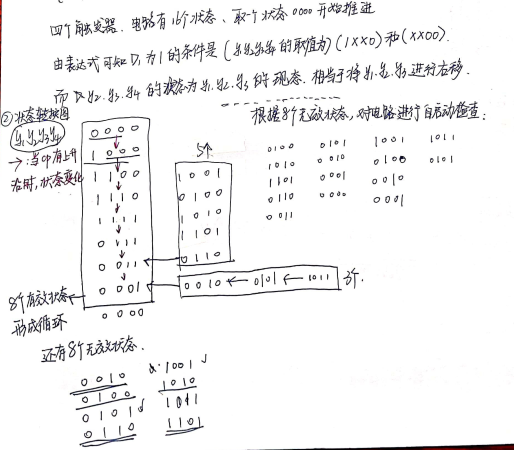 四个触发器. 电路有16个状态、取一个状态0000开始推进
由表达式可知D₁为1的条件是(y₁y₂y₃y₄的取值为)(1××0)和(××00).
而 y₂. y₃. y₄ 的状态为y₁. y₂. y₃ 的现态. 相当于将y₁. y₂. y₃ 进行右移.
② 状态转换图
y₁y₂y₃y₄
→: 当中有上升
沿时, 状态变化
0 0 0 0
1 0 0 0
1 1 0 0
1 1 1 0
1 1 1 1
0 1 1 1
0 0 1 1
0 0 0 1
0 0 0 0
8个有效状态
形成循环
5个
1 0 0 1
0 1 0 0
1 0 1 0
1 1 0 1
0 1 1 0
0 0 1 0 ← 0101 ← 1011
3个.
根据8个无效状态, 对电路进行自启动检查:
0100 0101 1001 1011
1010 0010 0100 0101
1101 0001 0010
0110 0000 0001
0011
还有8个无效状态.
0 0 1 0 1001
0 1 0 0 1010
0 1 0 1 1011
0 1 1 0 1101